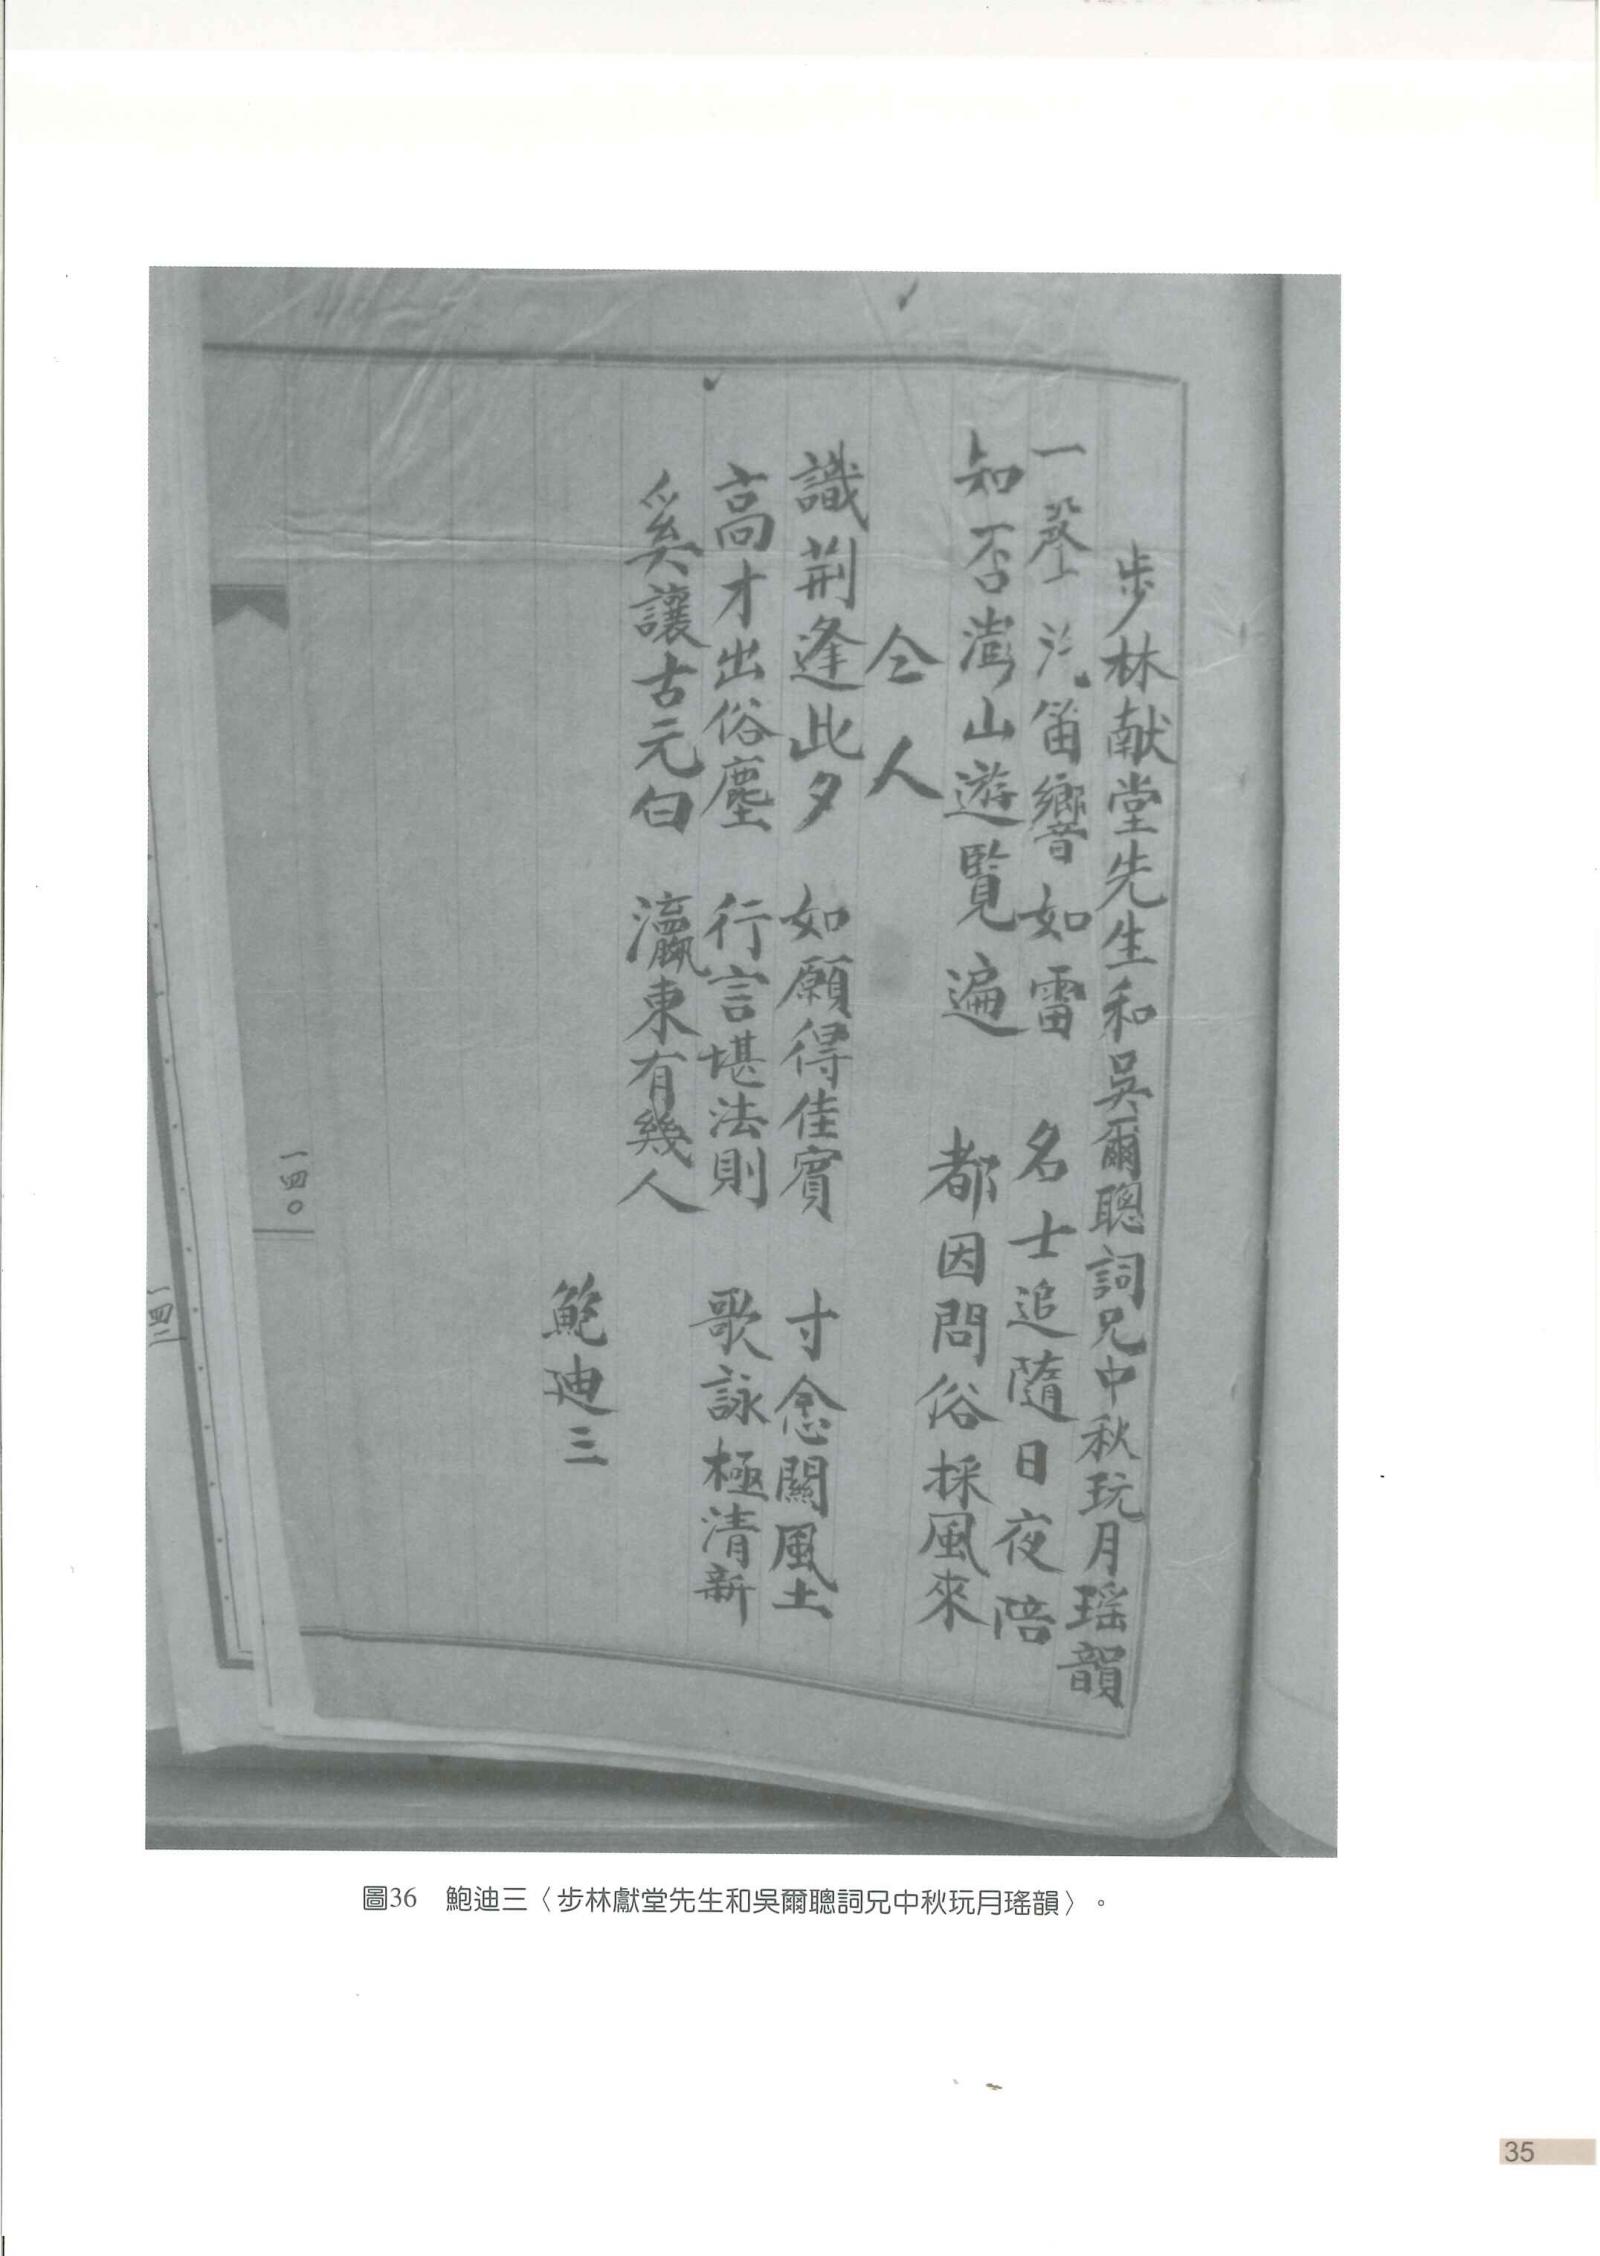 步林献堂先生和吳爾聰詞兄中秋玩月瑶韻
一聲汽笛響如雷 名士追隨日夜陪
知否澎山遊覧遍 都因問俗採風來
仝人
識荊逢此夕 如願得佳賓 寸念關風土
高才出俗塵 行言堪法則 歌詠極清新
奚讓古元白 瀛東有幾人
鮑迪三
一四〇
一四二
圖36 鮑迪三〈步林獻堂先生和吳爾聰詞兄中秋玩月瑤韻〉。
35